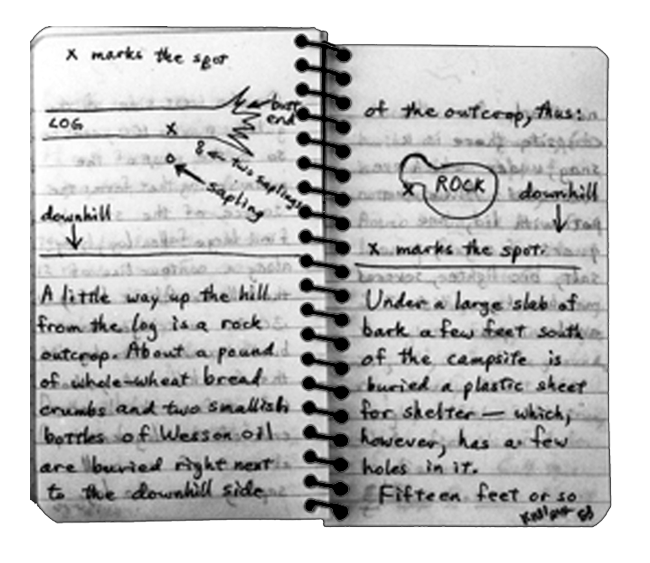 x marks the spot
butt
end
LOG
x
two saplings
sapling
downhill
A little way up the hill
from the log is a rock
outcrop. About a pound
of whole-wheat bread
crumbs and two smallish
bottles of Wesson oil
are buried right next
to the downhill side
of the outcrop, thus:
ROCK
x
downhill
x marks the spot.
Under a large slab of
bark a few feet south
of the campsite is
buried a plastic sheet
for shelter — which,
however, has a few
holes in it.
Fifteen feet or so